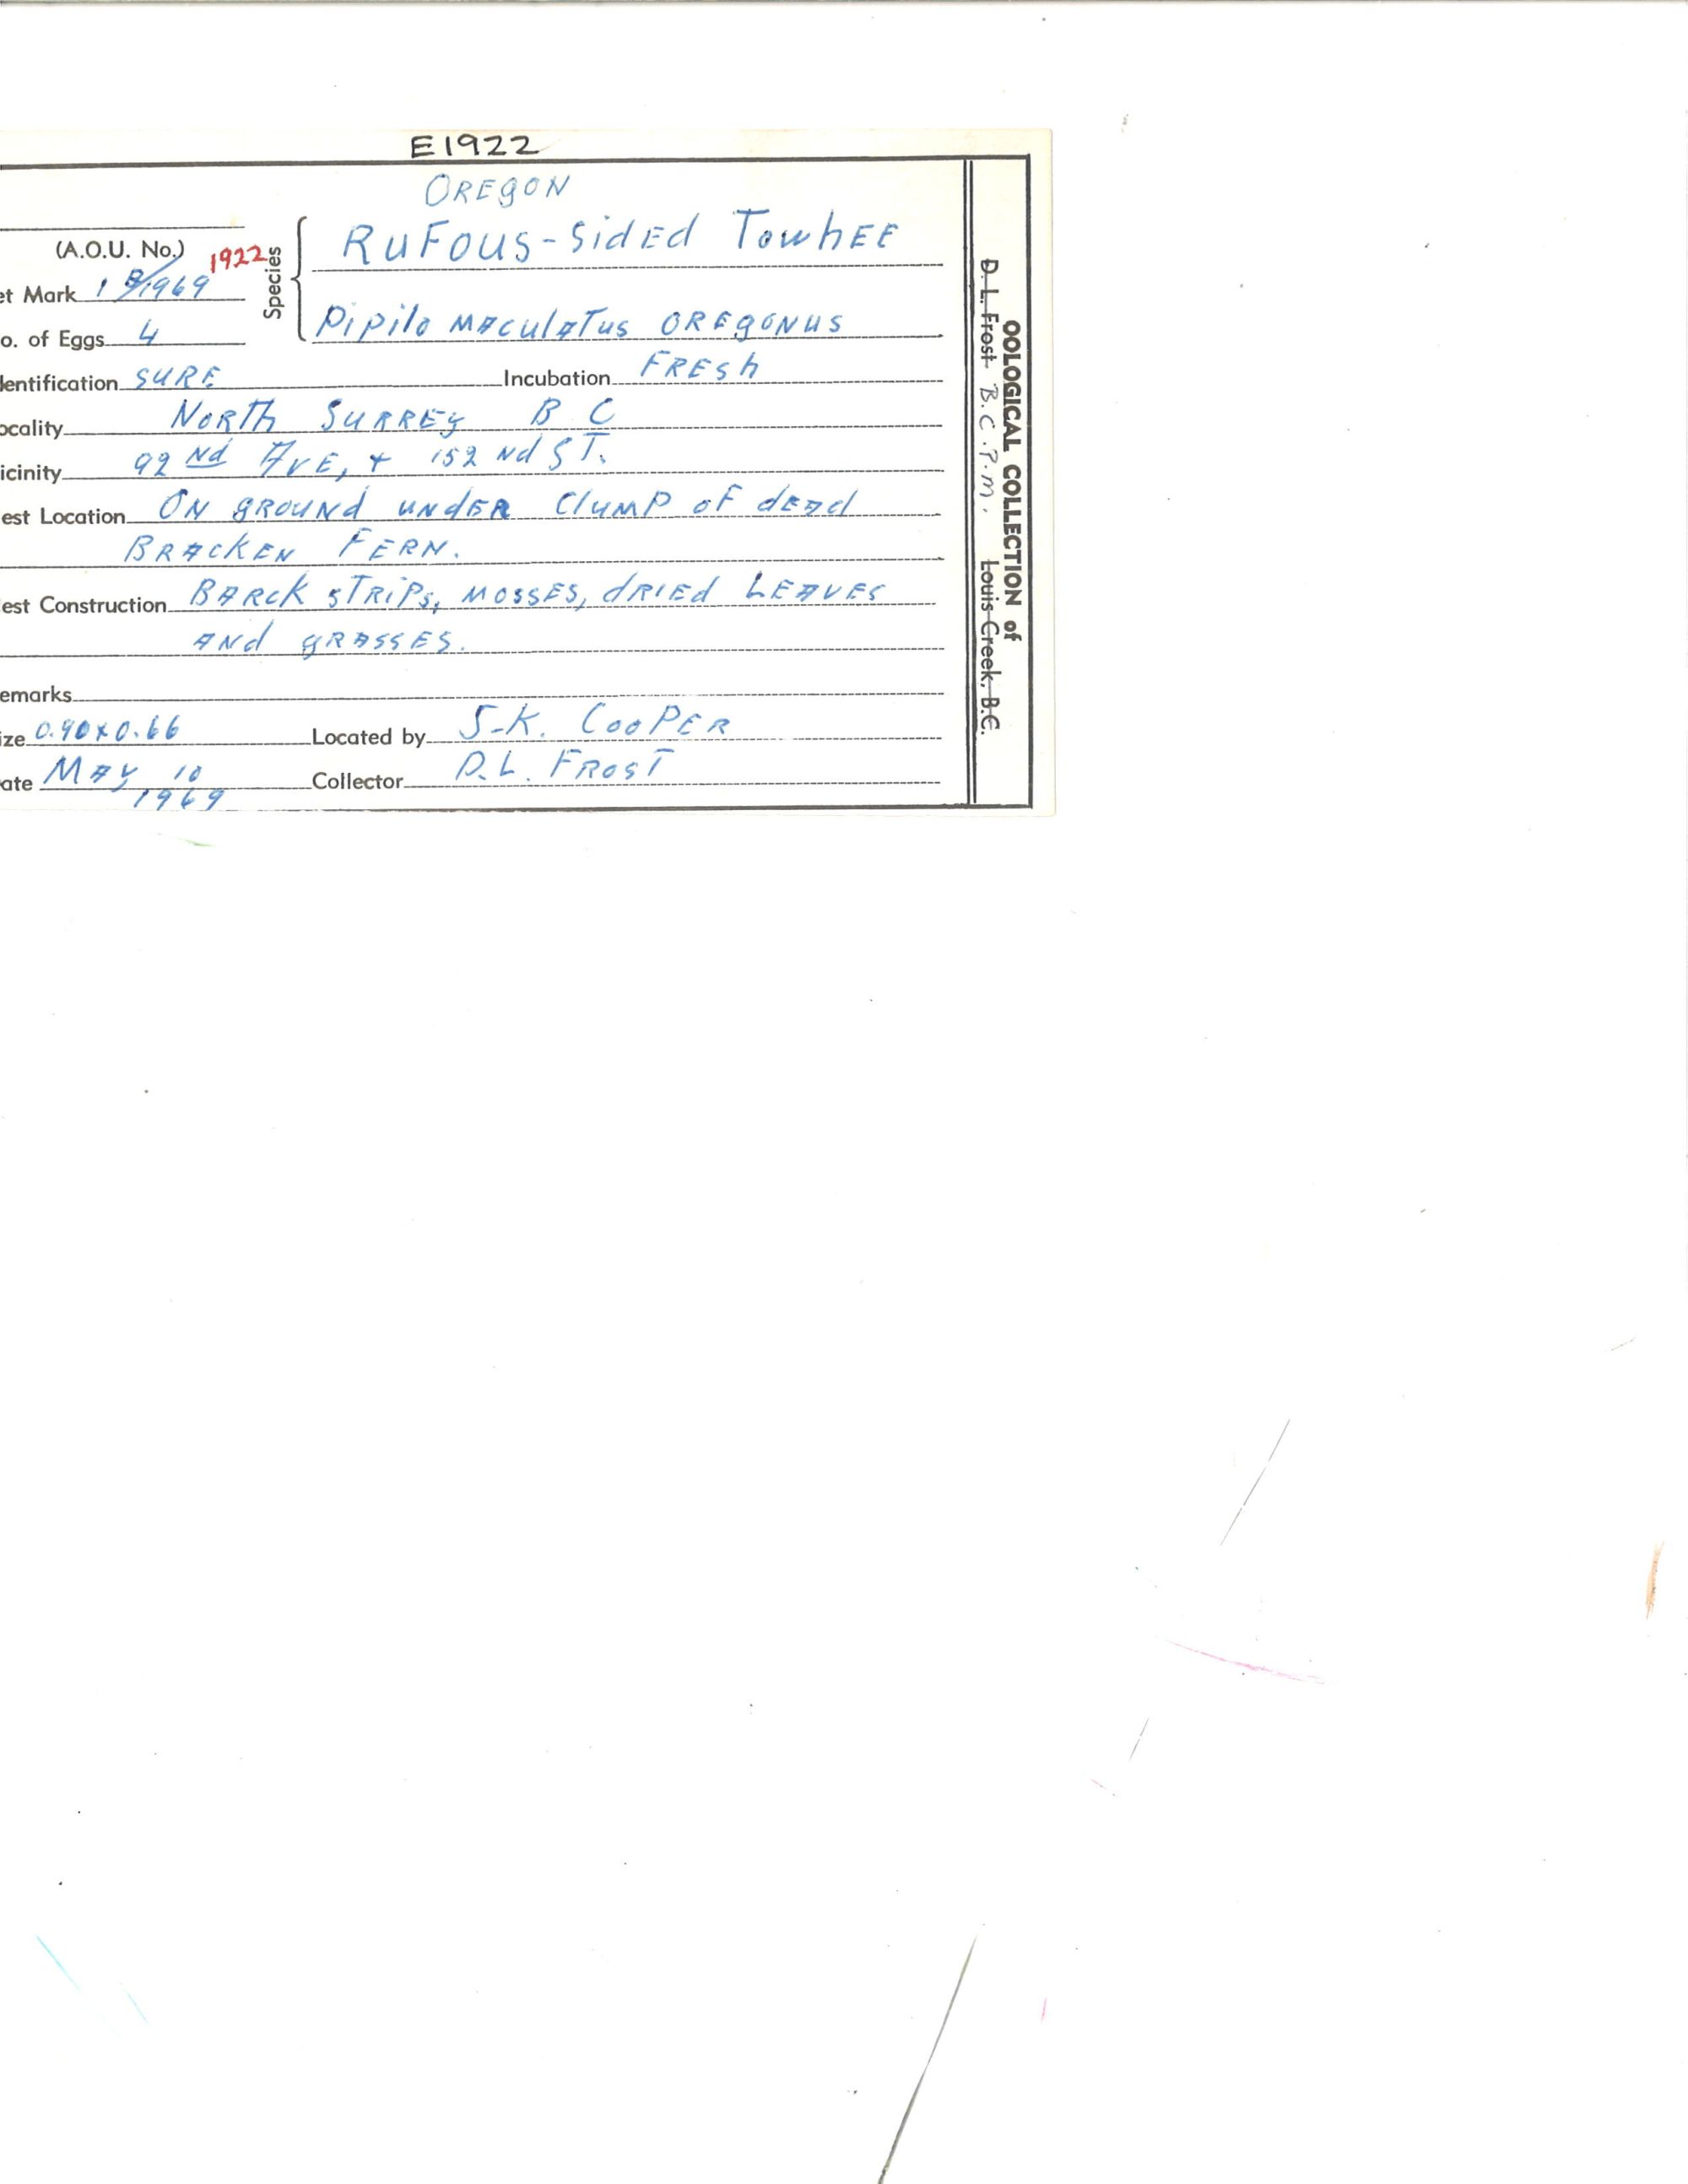 E1922
OREGON
(A.O.U. No.) 1922 Species RUFOUS-SIDED TOWHEE
et Mark 1 1969
PIPILO MACULATUS OREGONUS
o. of Eggs 4
dentification SURE Incubation FRESH
ocality NORTH SURREY B C
icinity 92 ND AVE, + 152 ND ST.
est Location ON GROUND UNDER CLUMP OF DEAD
BRACKEN FERN.
est Construction BARCK STRIPS, MOSSES, DRIED LEAVES
AND GRASSES.
emarks
ize 0.90 x 0.66 Located by S-K. COOPER
ate MAY 10 Collector D.L. FROST
1969
OOLOGICAL COLLECTION of
D. L. Frost B.C.P.M. Louis Creek, B.C.